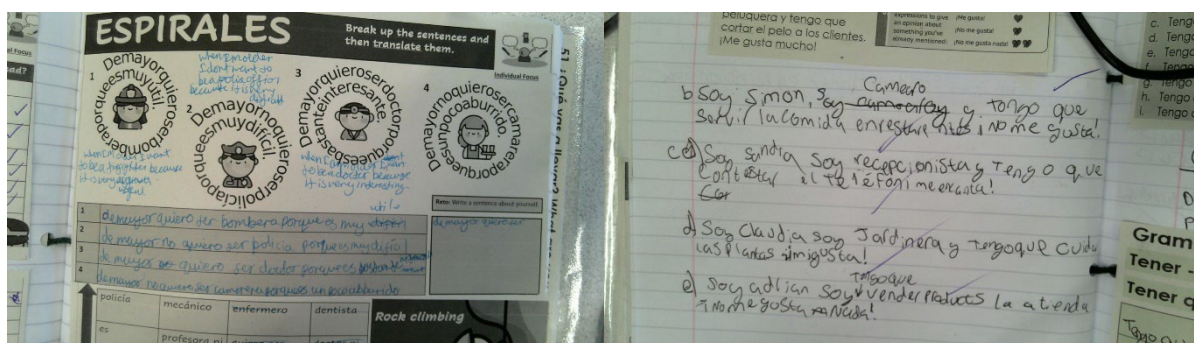 ESPIRALES
Break up the sentences and
then translate them.
Individual Focus
1
Demayorquieroserbomberaporqueesmuyútil.
when I'm older I want
to be a firefighter because
it is very
useful
2
Demayornoquieroserpolicíaporqueesmuydifícil.
when I'm older
I don't want to
be a police officer
because it is very
difficult
3
Demayorquieroserdoctorporqueesbastanteinteresante.
when I am older I want
to be a doctor because
it is very interesting
4
Demayornoquierosercamareraporqueesunpocoaburrido.
útil
1 de mayor quiero ser bombera porque es muy
2 de mayor no quiero ser policía porque es muy difícil
3 de mayor quiero ser doctor porque es
4 de mayor no quiero ser camarera porque es un poco aburrido
Reto: Write a sentence about yourself.
de mayor quiero ser
policía mecánico enfermero dentista
es profesora ni
Rock climbing
peluquera y tengo que
cortar el pelo a los clientes.
¡Me gusta mucho!
expressions to give
an opinion about
something you've
already mentioned:
¡Me gusta!
¡No me gusta!
¡No me gusta nada!
c. Teng
d. Teng
e. Teng
f. Teng
g. Teng
h. Tengo
i. Tengo
Camearo
b Soy Simon, Soy y tongo que
Servir la comida en restarantes ¡no me gusta!
c Soy Sandra Soy recepcionista y Tengo que
contestar el teléfoni me encanta!
d) Soy Claudia soy Jardinera y Tengo que Cuida
las plantas ¡migusta!
tengo que
e) Soy adrian Soy vender products la atienda
¡No me gusta Nada!
Gram
Tener -
Tener q
Tengo